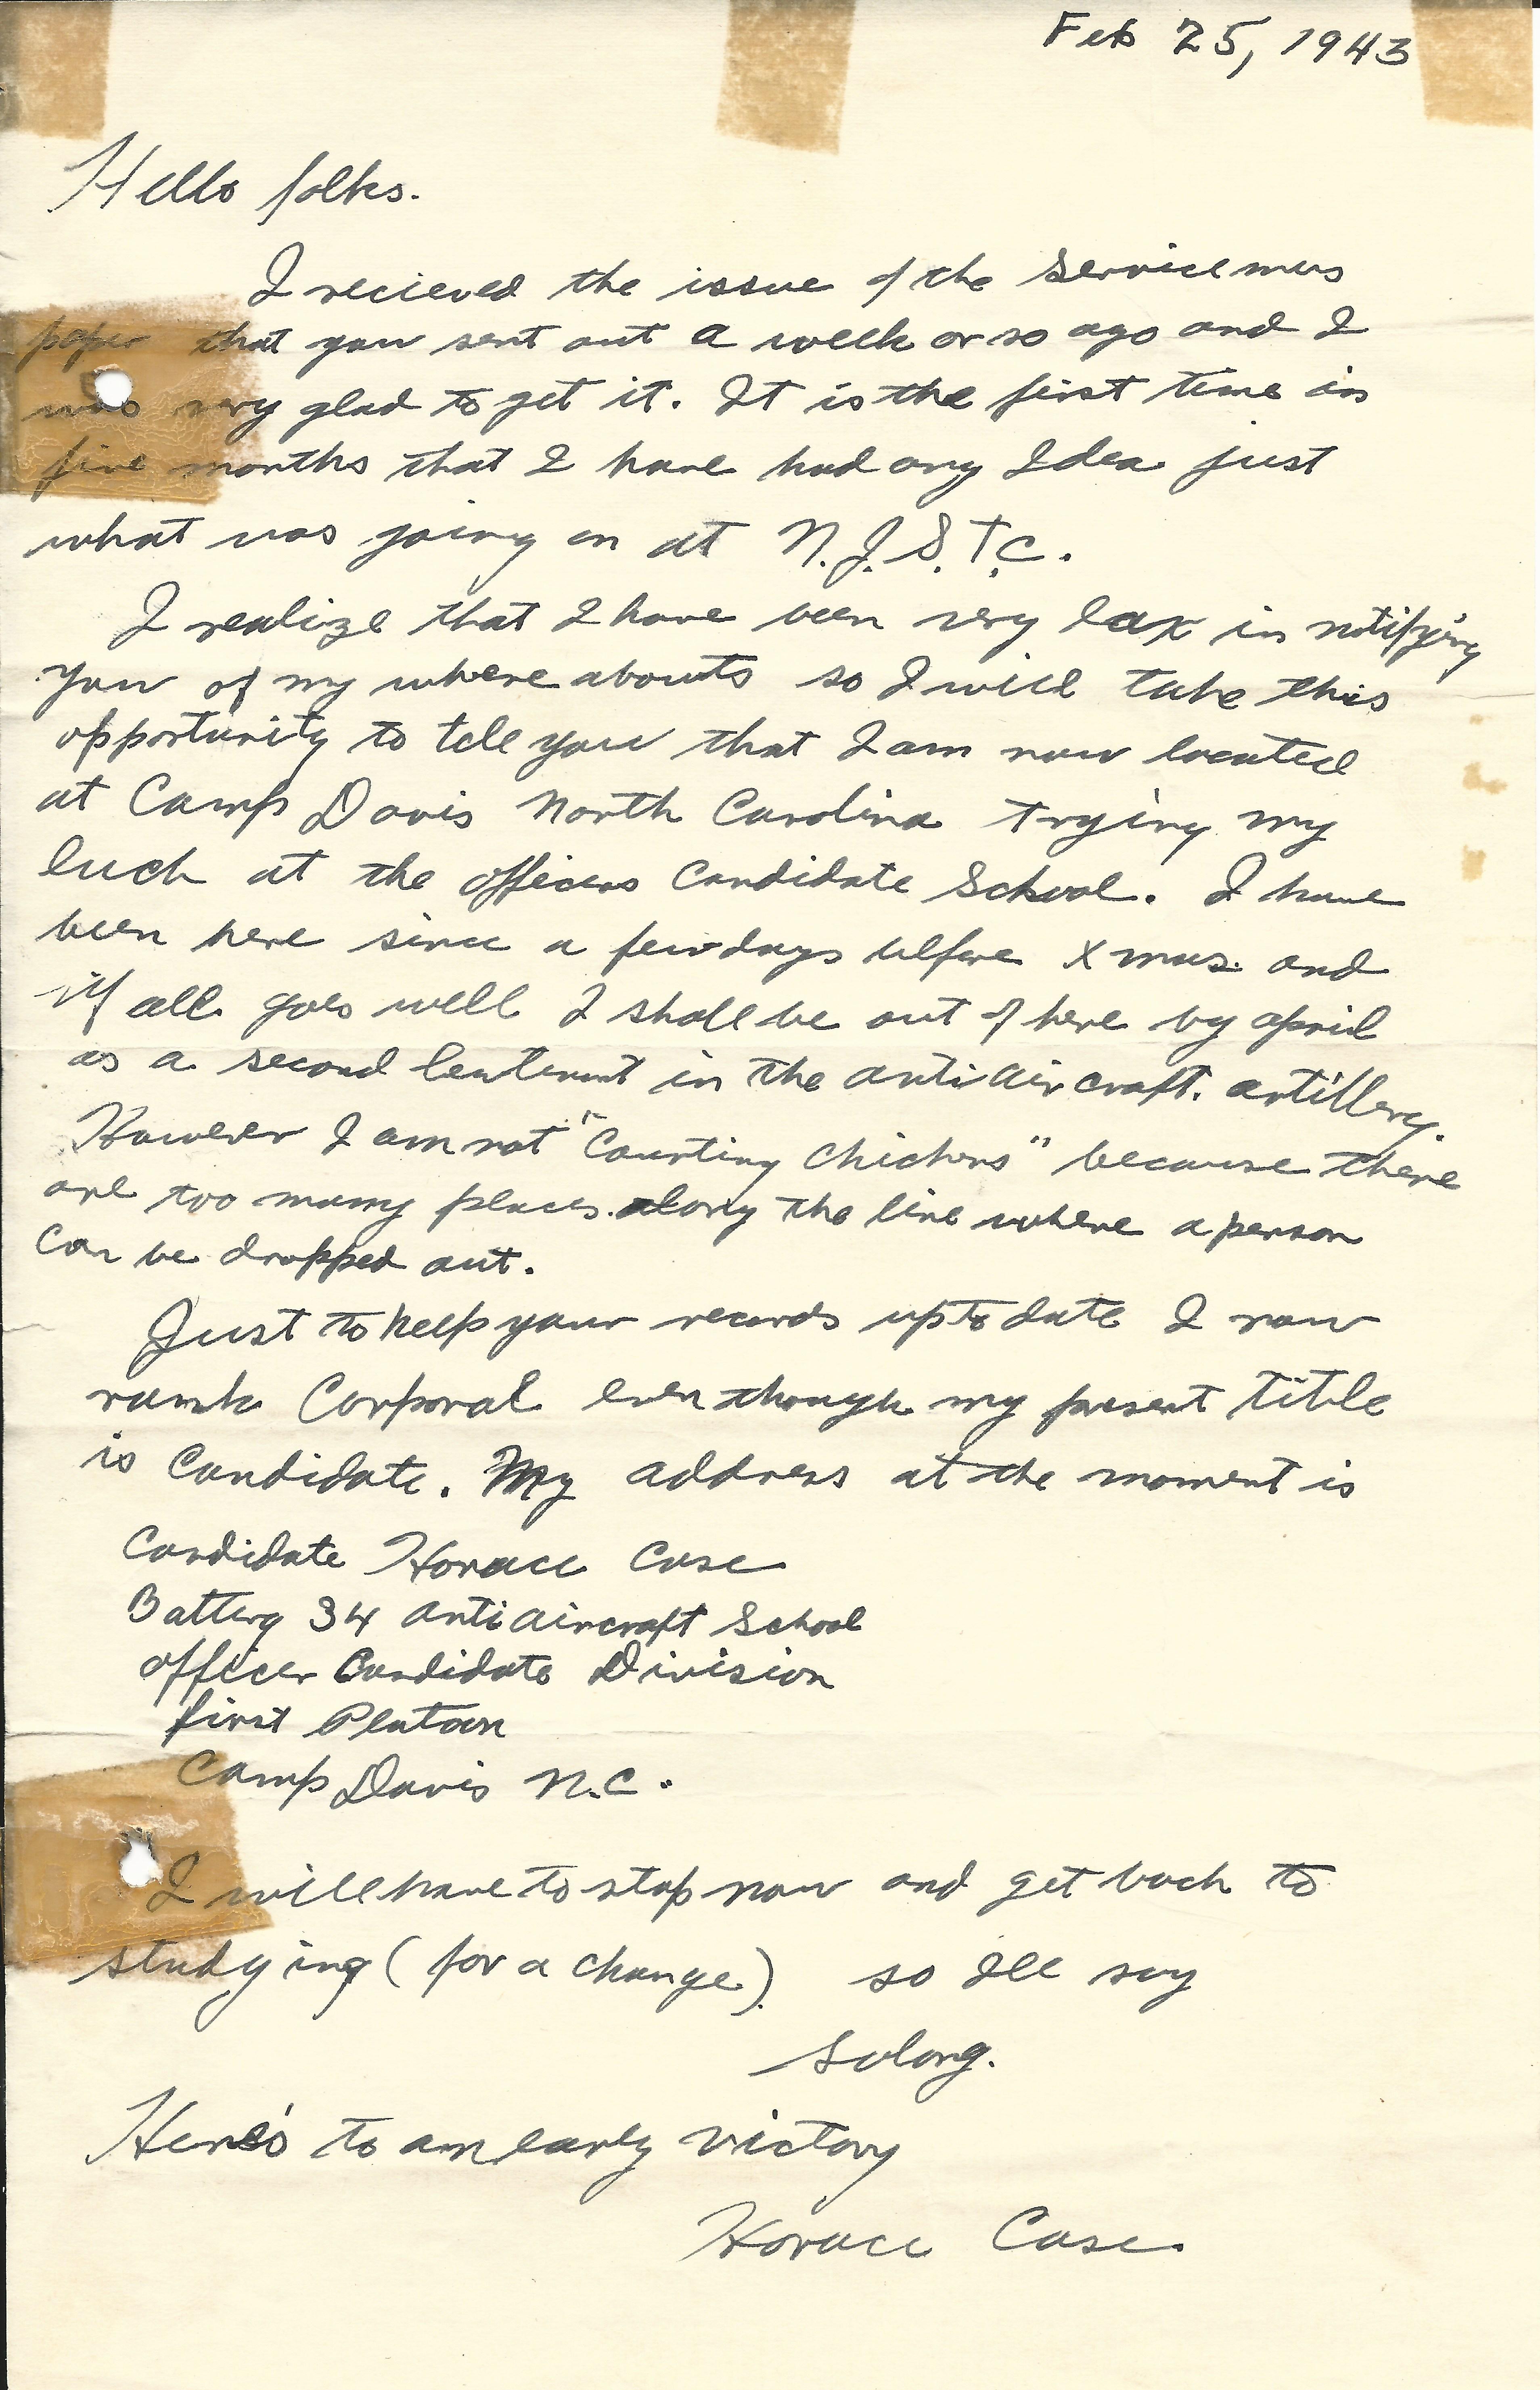 Feb 25, 1943
Hello folks.
I recieved the issue of the servicemens
paper that you sent out a week or so ago and I
was very glad to get it. It is the first time in
five months that I have had any Idea just
what was going on at N.J.S.T.C.
I realize that I have been very lax in notifying
you of my where abouts so I will take this
opportunity to tell you that I am now located
at Camp Davis North Carolina trying my
luck at the officers Candidate School. I have
been here since a few days before Xmas. and
if all goes well I shall be out of here by april
as a second leutenent in the anti aircraft. artillery.
However I am not "Counting Chickens" because there
are too many places along the line where a person
can be dropped out.
Just to help your records up to date I now
rank Corporal even though my present title
is Candidate. My address at the moment is
Candidate Horace Case
Battery 34 anti aircraft School
officer Candidate Division
first Platoon
Camp Davis N.C.
I will have to stop now and get back to
studying (for a change). so Ill say
solong.
Here's to an early victory
Horace Case.